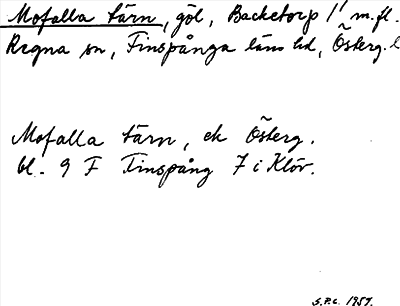 Mofalla tärn, göl, Backetorp 1/1 m.fl.
Regna sn, Finspånga läns hd, Österg. l
Mofalla tärn, ek Österg.
bl. 9 F Finspång 7 i Klöv.
S.P.C. 1957.